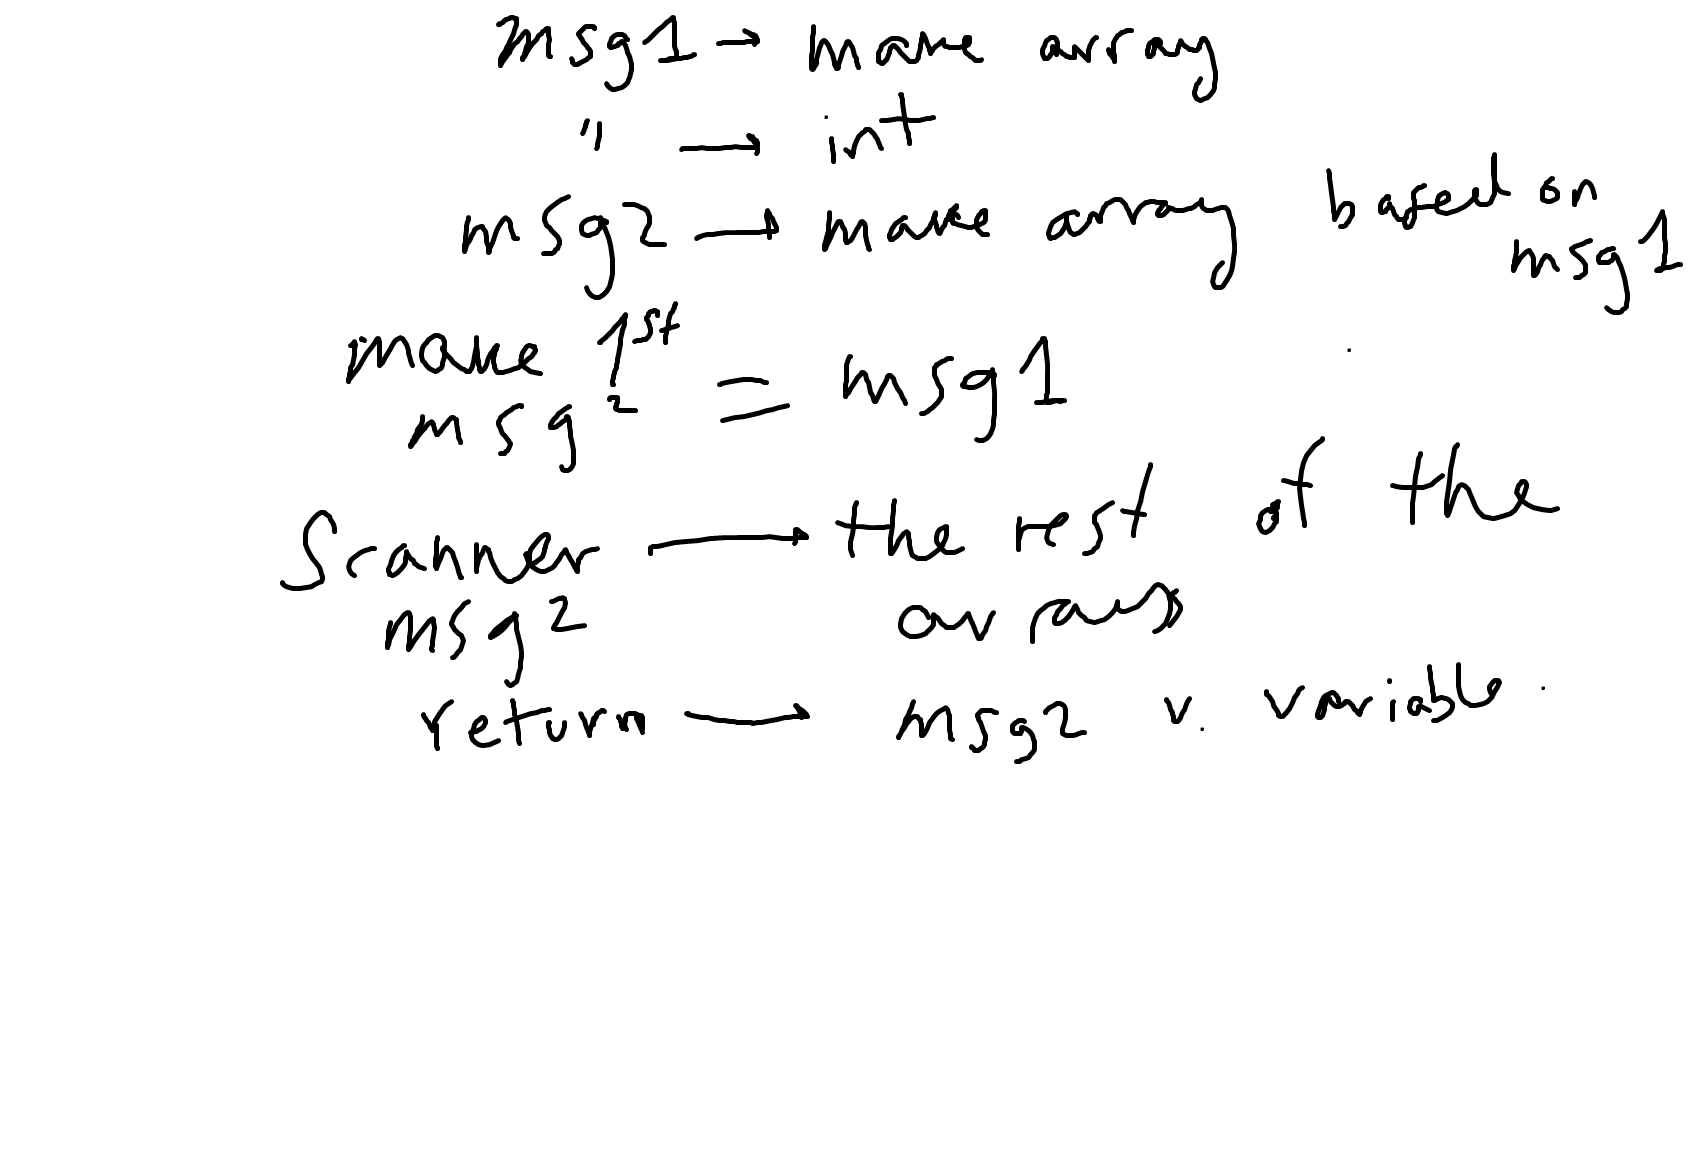 msg1 → make array
" → int
msg2 → make array based on
msg1
make 1st = msg1
msg2
Scanner → the rest of the
msg2
return → msg2 v. variable